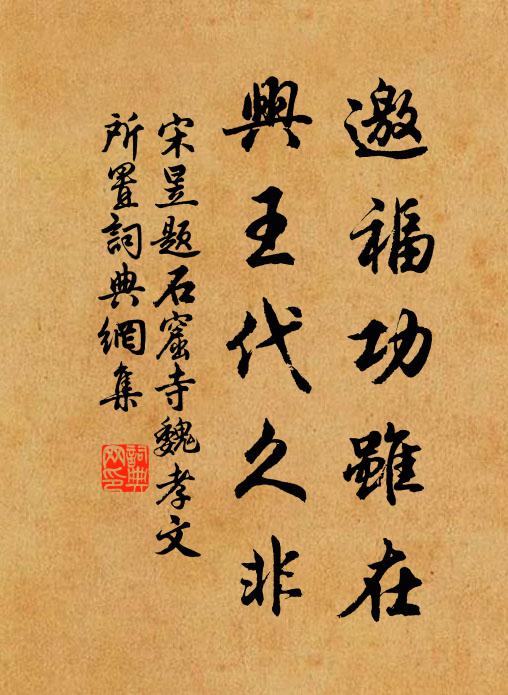 邀福功雖在
興王代久非
宋昱題石窟寺魏孝文
所置詞典網集
詞典網印